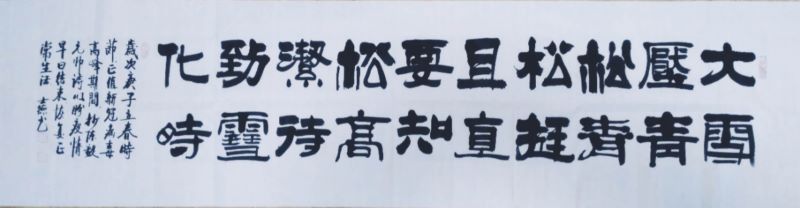 大雪
壓青
松青
松挺
且直
要知
松高
潔待
到雪
化時
歲次庚子立春時
節正值新冠病毒
高峰期間抄陈毅
元帅诗以盼疫情
早日结束恢复正
常生活